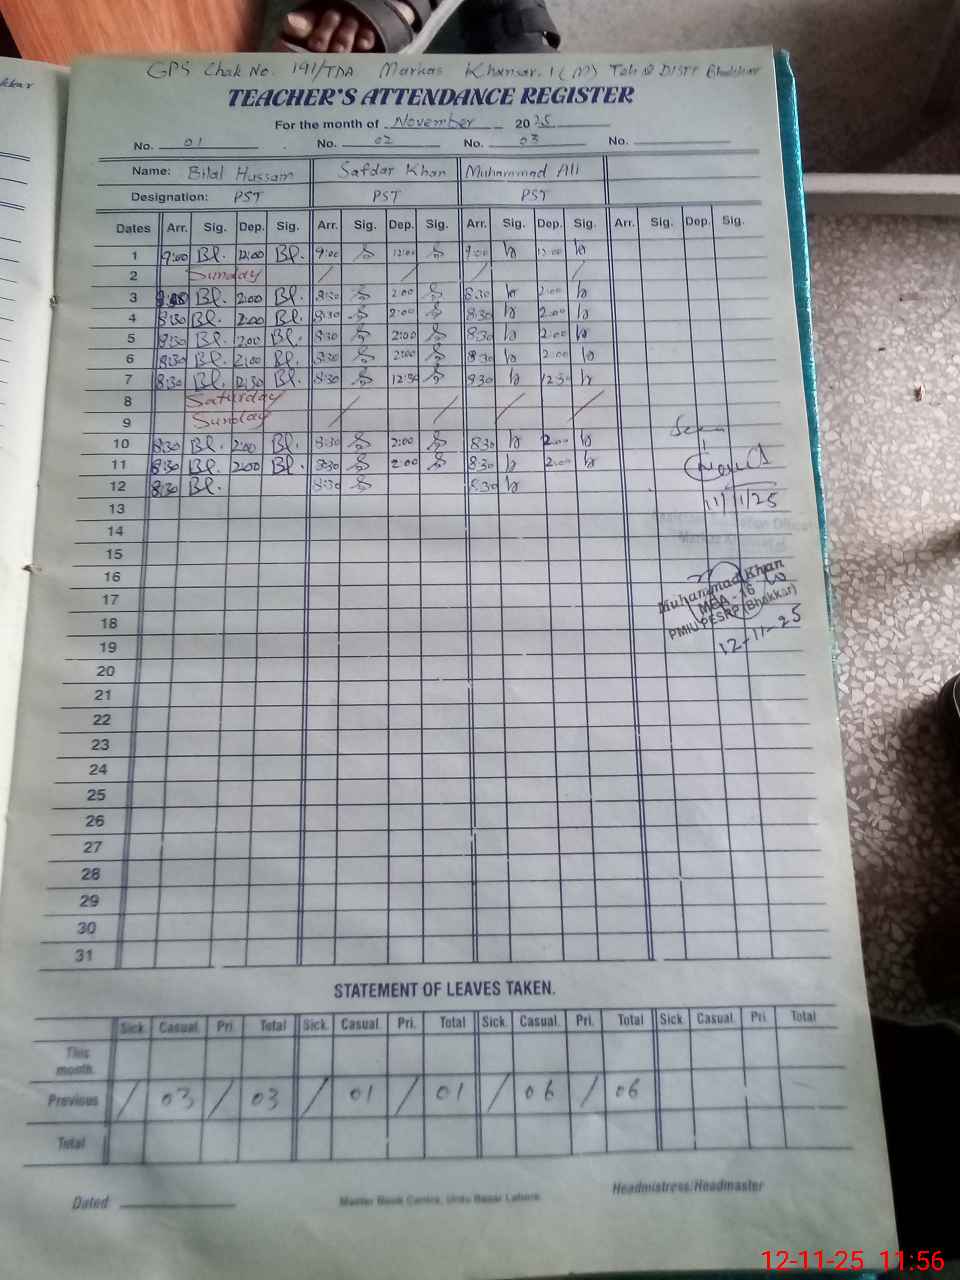 GPS Chak No. 191/TDA Markas Khansar.1(M) Teh & DISTT Bhakkar
TEACHER'S ATTENDANCE REGISTER
For the month of November 2025
No. 01 No. 02 No. 03 No.
Name: Bilal Hussain Safdar Khan Muhammad Ali
Designation: PST PST PST
Dates Arr. Sig. Dep. Sig. Arr. Sig. Dep. Sig. Arr. Sig. Dep. Sig. Arr. Sig. Dep. Sig.
1 9:00 Bl. 12:00 Bl. 9:00 12:00 9:00 12:00
2 Sunday
3 Bl. 2:00 Bl. 8:30 2:00 8:30 2:00
4 8:30 Bl. 2:00 Bl. 8:30 2:00 8:30 2:00
5 8:30 Bl. 2:00 Bl. 8:30 2:00 8:30 2:00
6 8:30 Bl. 2:00 Bl. 8:30 2:00 8:30 2:00
7 8:30 Bl. 12:30 Bl. 8:30 12:30 8:30 12:30
8 Saturday
9 Sunday
10 8:30 Bl. 2:00 Bl. 8:30 2:00 8:30 2:00
11 8:30 Bl. 2:00 Bl. 8:30 2:00 8:30 2:00
12 8:30 Bl. 8:30 8:30
Seen
11/11/25
13
14
15
16
17
18
19
Muhammad Khan
MEA - 16
PMIU PESRP (Bhakkar)
12-11-25
20
21
22
23
24
25
26
27
28
29
30
31
STATEMENT OF LEAVES TAKEN.
Sick Casual Pri. Total Sick. Casual Pri. Total Sick. Casual Pri. Total Sick. Casual Pri. Total
This month
Previous / 03 / 03 / 01 / 01 / 06 / 06
Total
Dated Master Book Centre, Urdu Bazar Lahore. Headmistress/Headmaster
12-11-25 11:56